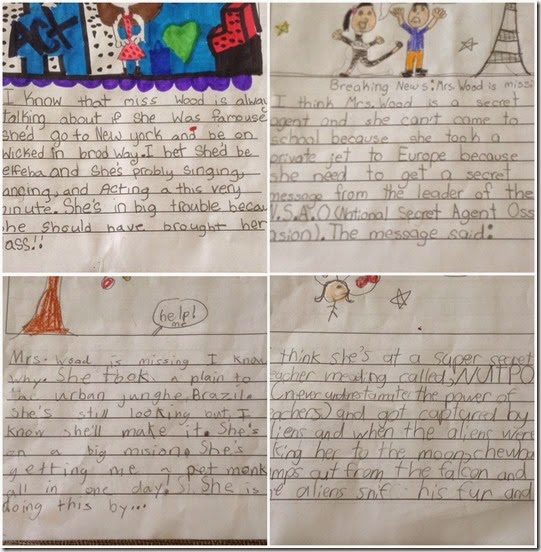 ACT
I know that miss Wood is alway
talking about if she was famouse
she'd go to New york and be on
wicked in brod Way. I bet She'd be
elfeba and she's probly singing,
ancing, and Acting a this very
inute. She's in big trouble becau
he should have brought her
ass!!
Breaking News: Mrs. Wood is missi
I think Mrs. Wood is a secret
agent and she can't came to
school because she took a
private jet to Europe because
she need to get a secret
message from the leader of the
N.S.A.O (National Secret Agent Oss
asion). The message said:
help!
me
Mrs. Wood is missing I know
why. She took a plain to
the urban junghe, Brazil.
she's still looking but, I
know she'll make it. She's
on a big mision. She's
getting me a pet monk
all in one day. She is
doing this by...
I think she's at a super secret
eacher meading called, NUTPO
(never undrestamite the power of
eachers) and got captured by
liens and when the aliens were
king her to the moon, chewba
mps out from the falcon and
e aliens snif his fur and